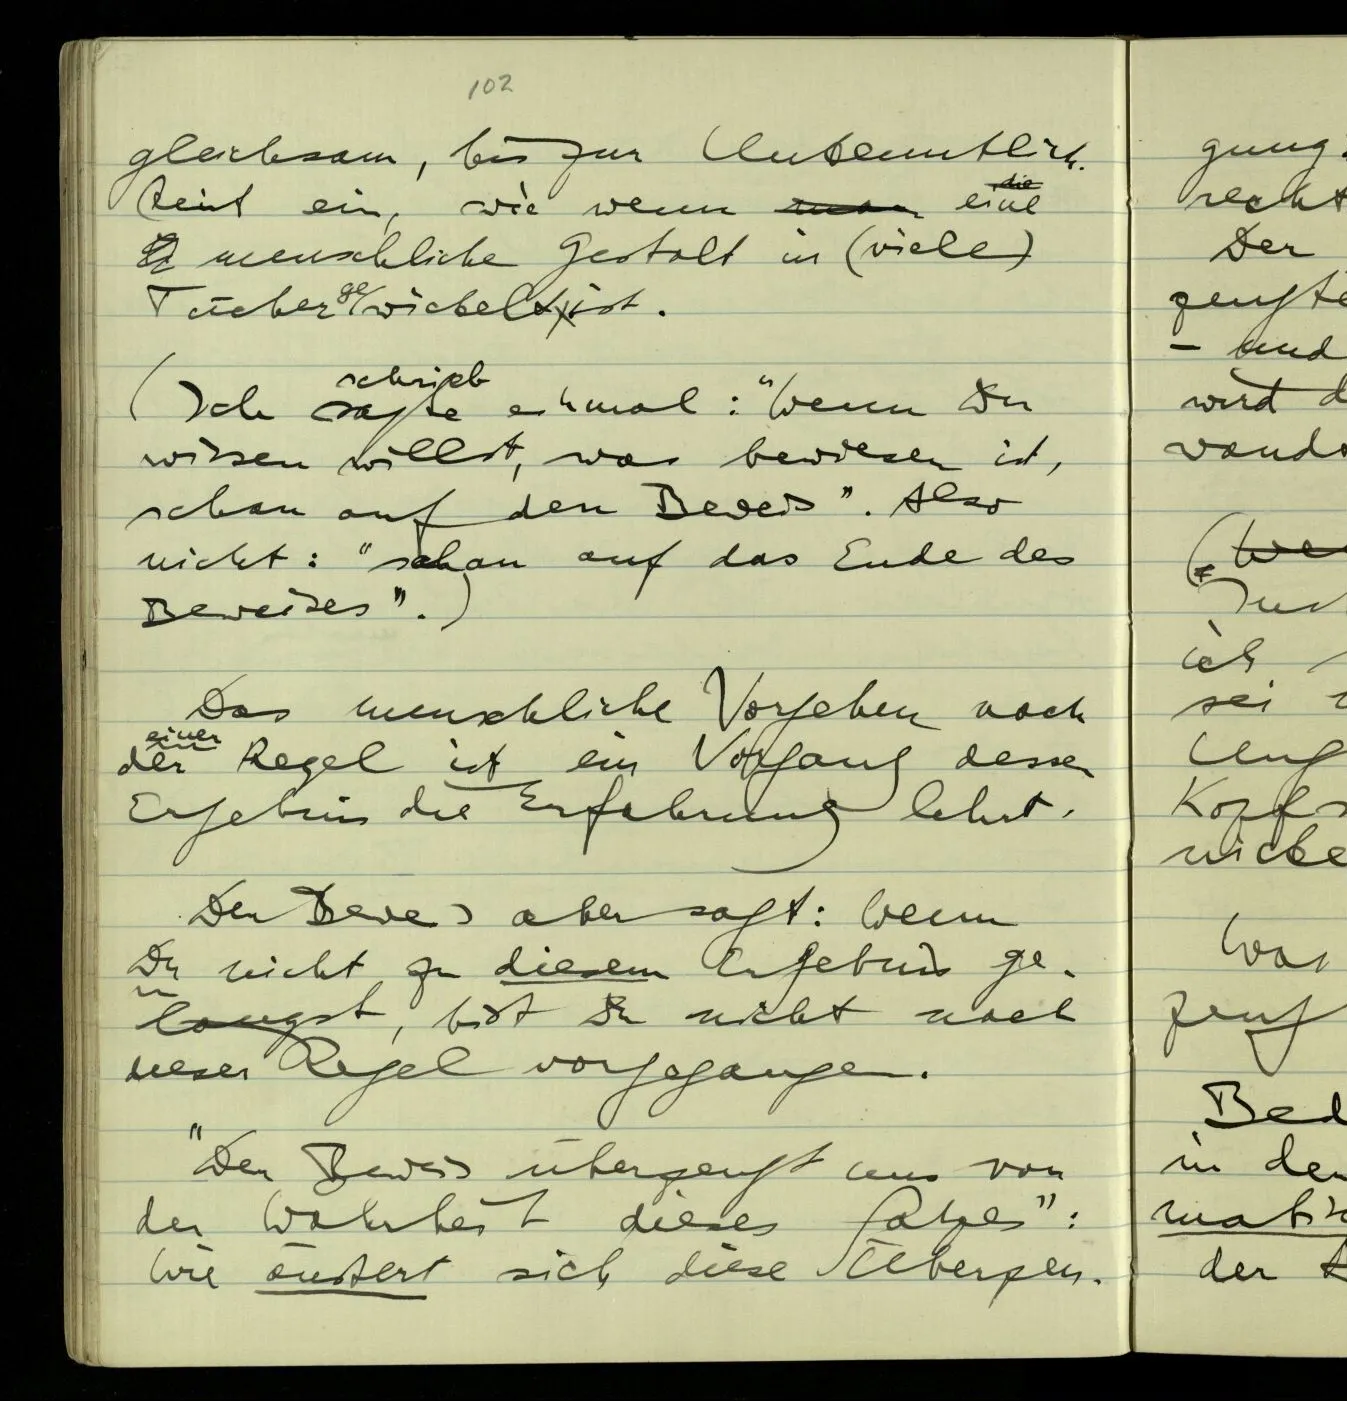 102
gleichsam, bis zur Unkenntlich-
keit ein, wie wenn man die eine
menschliche Gestalt in (viele)
Tücher gewickelt ist.
(Ich sagte schrieb einmal: "Wenn Du
wissen willst, was bewiesen ist,
schau auf den Beweis". Also
nicht: "schau auf das Ende des
Beweises".)
Das menschliche Vorgehen nach
der einer Regel ist ein Vorgang dessen
Ergebnis die Erfahrung lehrt.
Der Beweis aber sagt: Wenn
Du nicht zu diesem Ergebnis ge-
langst, bist Du nicht nach
dieser Regel vorgegangen.
"Der Beweis überzeugt uns von
der Wahrheit dieses Satzes":
Wie äußert sich diese Überzeu-
gung
recht
Der
zeugte
– und
wird d
(We
ich
sei
Ung
Kopf
wicke
Was
zeug
Bed
in den
der